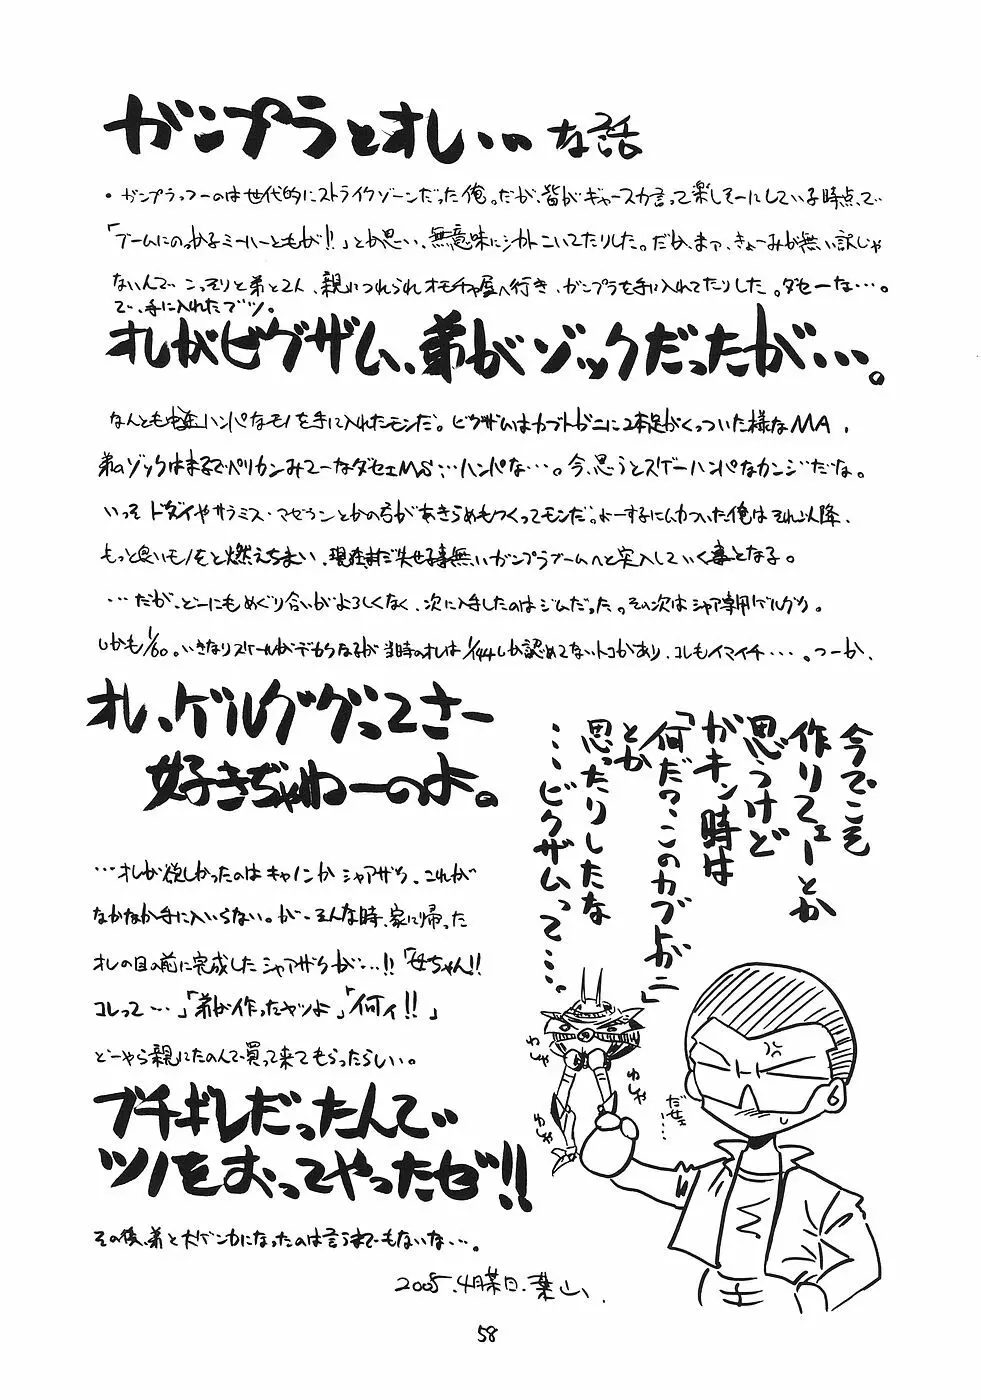 ガンプラとオレ…な話
・ガンプラっつーのは世代的にストライクゾーンだった俺。だが、皆がギャースカ言って楽しそーにしている時点で
「ブームにのっかるミーハーともが!!」とか思い、無意味にシカトこいてたりした。だか、まァ、きょーみが無い訳じゃ
ないんでこっそりと弟と2人、親につれられオモチャ屋へ行き、ガンプラを手に入れてたりした。ダセーな…。
で、手に入れたブツ。
オレがビグザム、弟がゾックだったが…。
なんとも中途ハンパなモノを手に入れたモンだ。ビグザムはカブトガニに2本足がくっついた様なMA、
弟のゾックはまるでペリカンみてーなダセェMS…ハンパな…。今、思うとスゲーハンパなカンジだな。
いっそドダイやサラミス・マゼランとかの方があきらめもつくってモンだ。よーするにムカついた俺はそれ以降、
もっと良いモノをと燃えちまい、現在まだ失せる事無いガンプラブームへと突入していく事となる。
…だが、どーにもめぐり合いがよろしくなく、次に入手したのはジムだった。その次はシャア専用ゲルググ。
しかも1/60。いきなりスケールがデカくなるが当時のオレは1/144しか認めてないトコがあり、コレもイマイチ…。つーか、
オレ、ゲルググってさー
好きぢゃねーのよ。
…オレが欲しかったのはキャノンかシャアザク、これが
なかなか手に入いらない。が、そんな時、家に帰った
オレの目の前に完成したシャアザクが…!!「母ちゃん!!
コレって…」「弟が作ったヤツよ」「何ィ!!」
どーやら親にたのんで買って来てもらったらしい。
ブチギレだったんで
ツノをおってやったゼ!!
その後、弟と大ゲンカになったのは言うまでもないな…。
2005.4月某日.葉山、
今でこそ
作りてェーとか
思うけど
がキン時は
「何だ?このカブトガニ」
とか
思ったりしたな
…ビグザムって…。
わしゃ
わしゃ
わしゃ
わしゃ
だせェ…
58